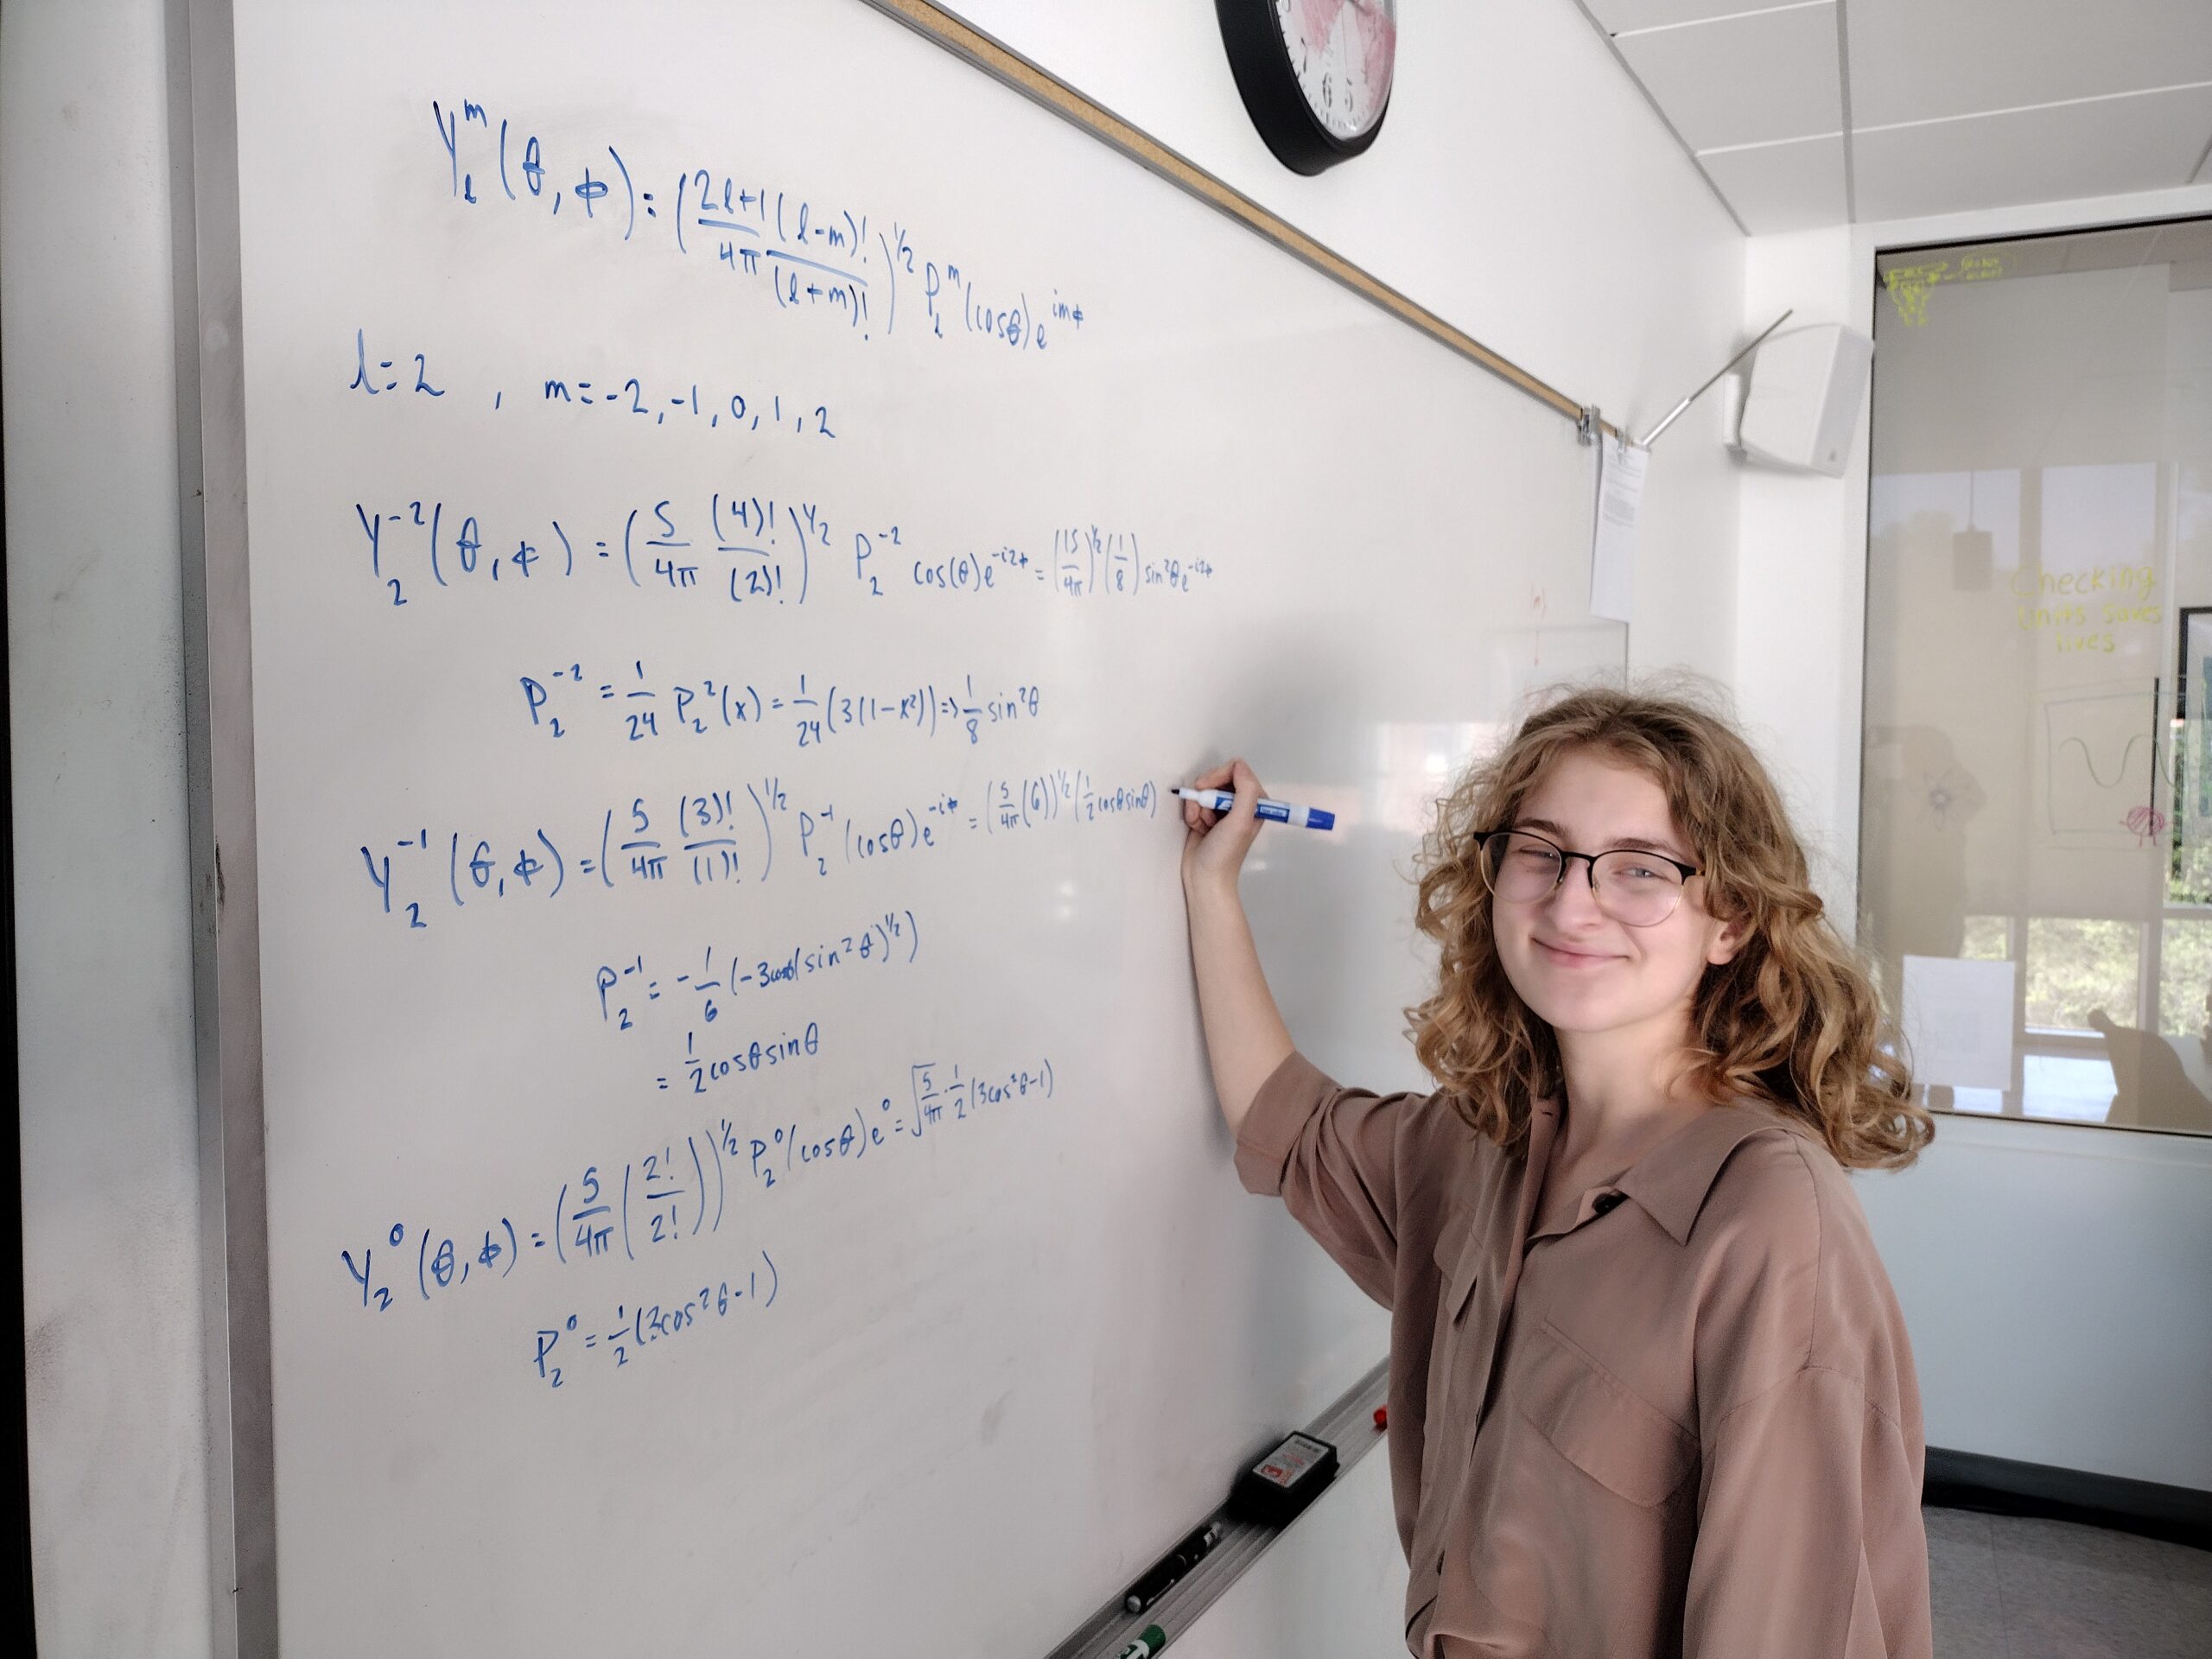 Y_l^m (θ, ϕ) = (2l+1/4π (l-m)!/(l+m)!)^1/2 P_l^m (cosθ) e^imϕ
l = 2 , m = -2, -1, 0, 1, 2
Y_2^-2 (θ, ϕ) = (5/4π (4)!/(2)!)^1/2 P_2^-2 cos(θ) e^-i2ϕ = (15/4π)^1/2 (1/8) sin²θ e^-i2ϕ
P_2^-2 = 1/24 P_2^2 (x) = 1/24 (3(1-x²)) => 1/8 sin²θ
Y_2^-1 (θ, ϕ) = (5/4π (3)!/(1)!)^1/2 P_2^-1 (cosθ) e^-iϕ = (5/4π (6))^1/2 (1/2 cosθ sinθ)
P_2^-1 = -1/6 (-3cosθ(sin²θ)^1/2)
= 1/2 cosθ sinθ
Y_2^0 (θ, ϕ) = (5/4π (2!/2!))^1/2 P_2^0 (cosθ) e^0 = √5/4π · 1/2 (3cos²θ-1)
P_2^0 = 1/2 (3cos²θ-1)
7 6 5
Checking
units saves
lives